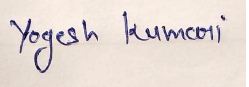 Yogesh Kumari